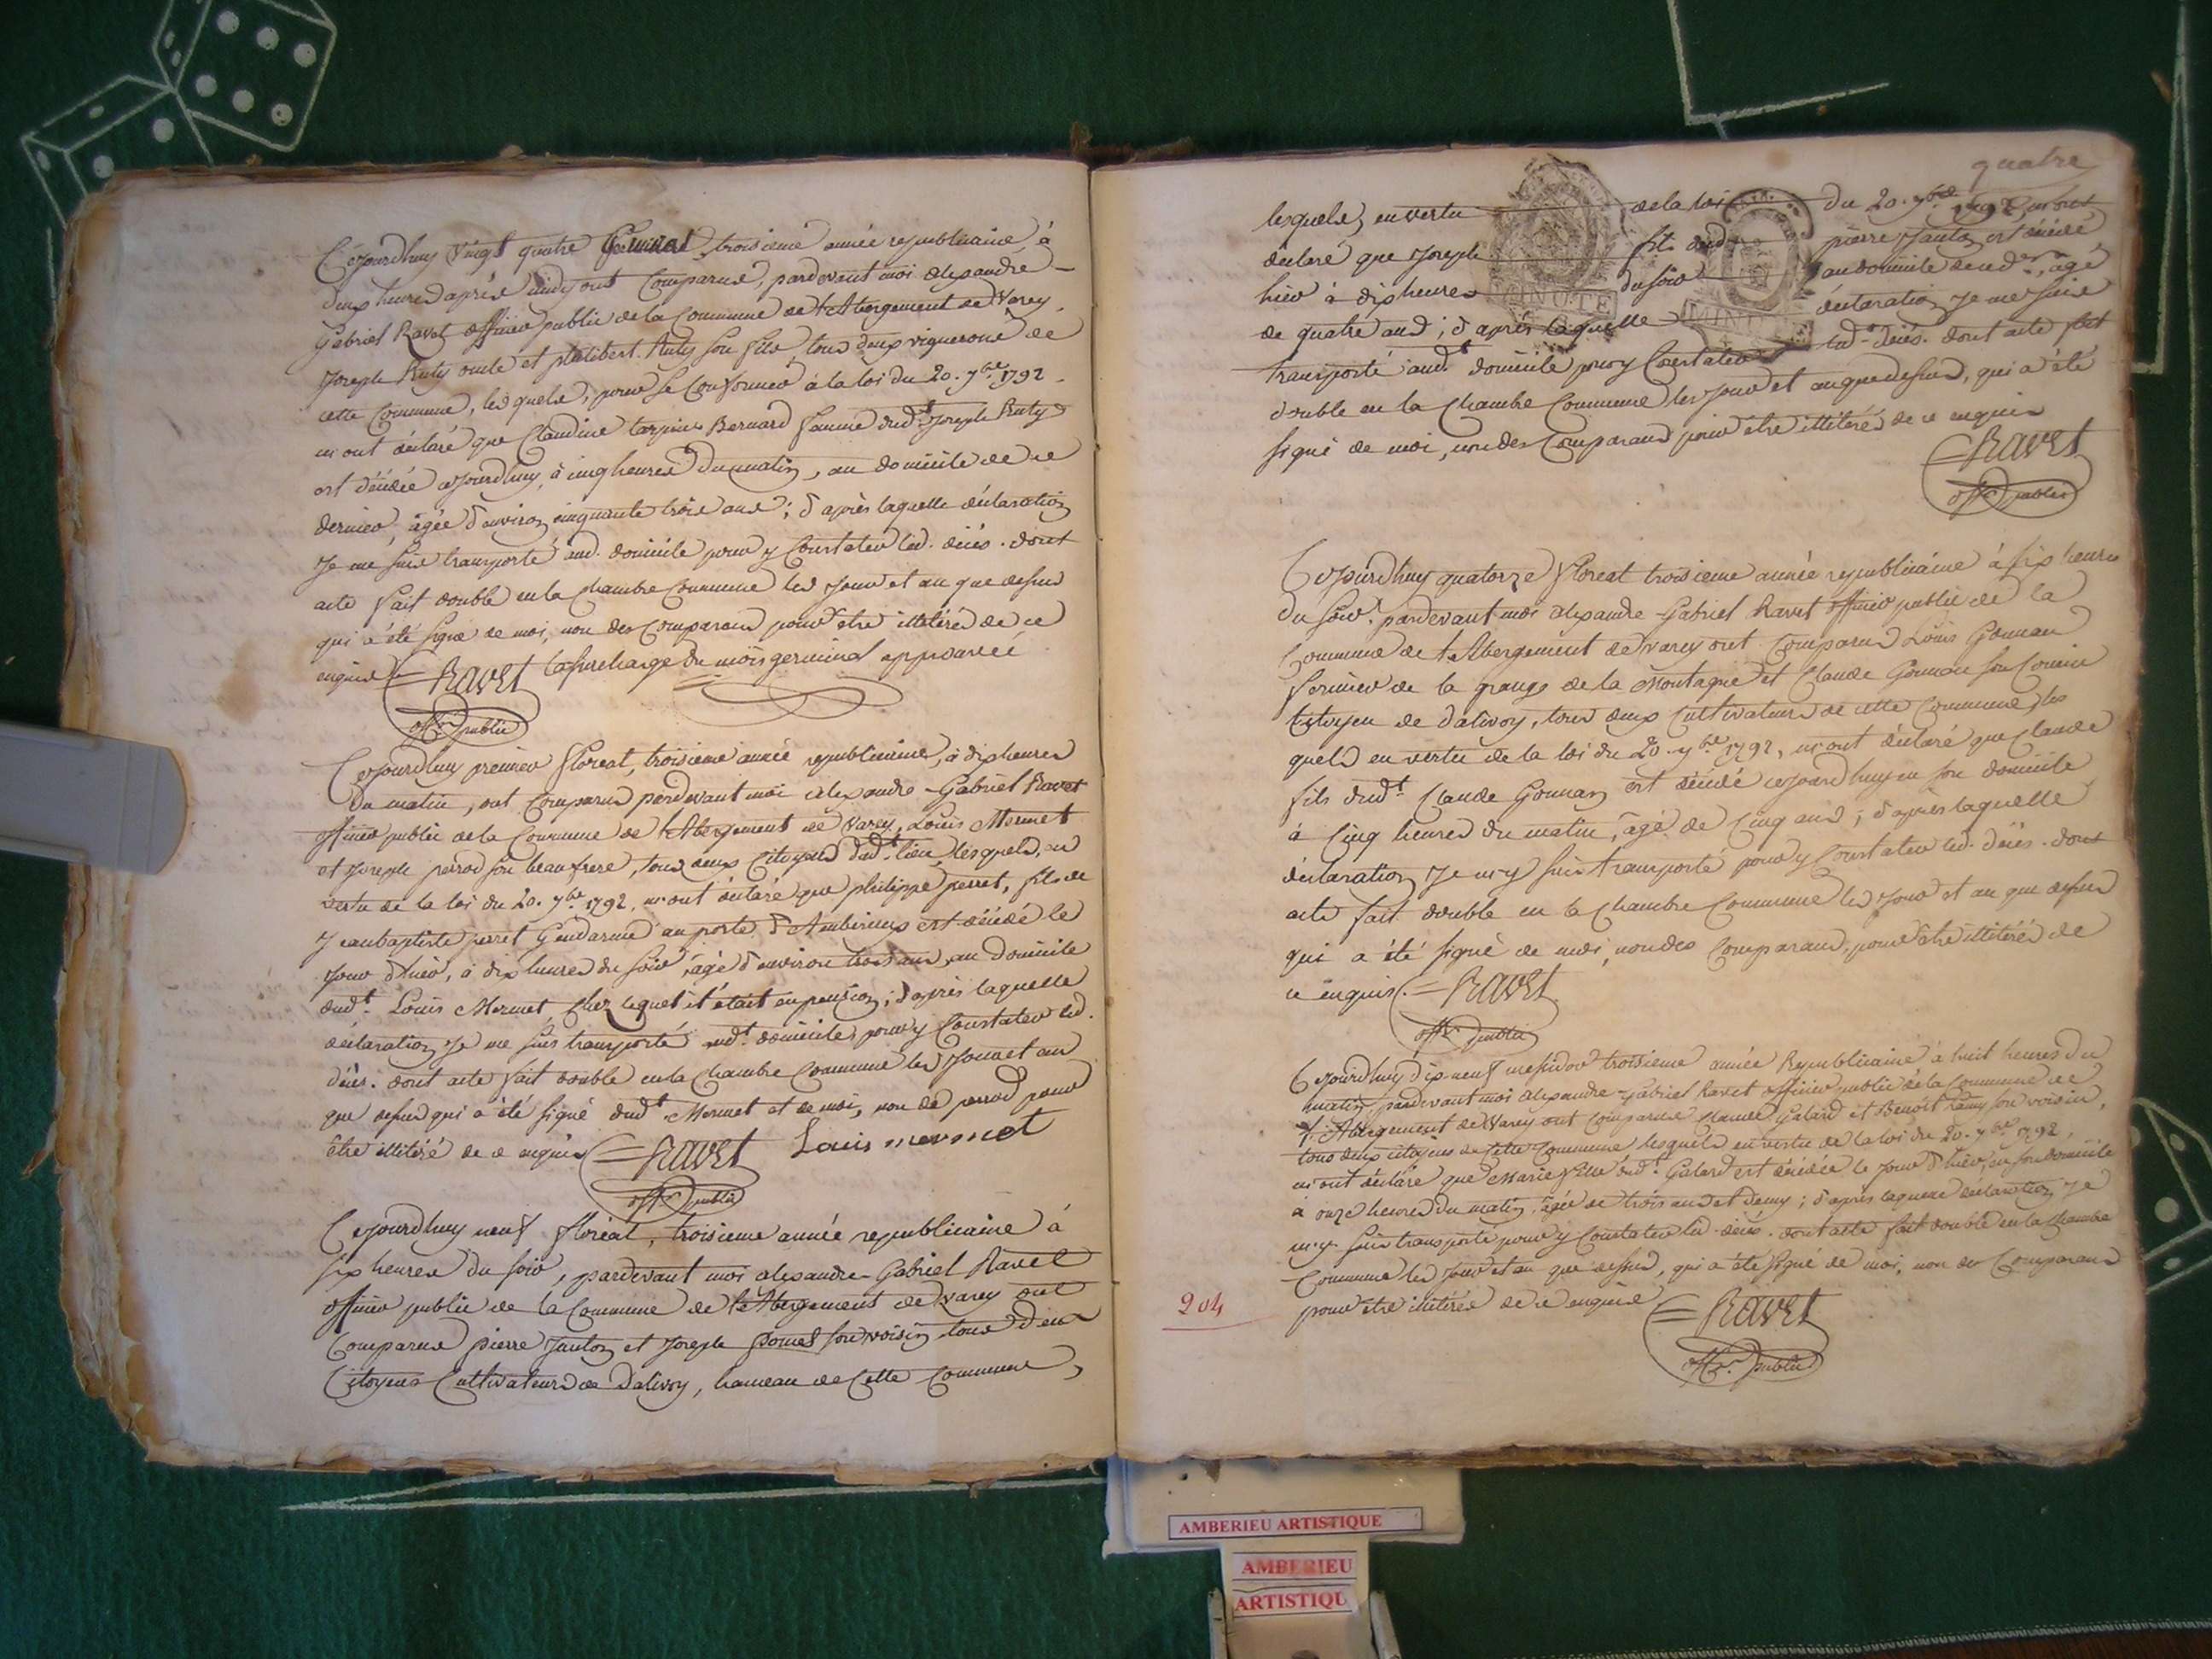 Cejourdhuy vingt quatre Germinal, troisieme année republicaine, à
deux heures après midy ont Comparus, pardevant moi alexandre
Gabriel Ravet officier public de la Commune de l'Abergement de Varey,
Joseph Ruty oncle et philibert Ruty son fils, tous deux vignerons de
cette Commune, lesquels, pour se Conformer à la loi du 20. 7bre 1792.
m'ont déclaré que Claudine Bernard femme dudt Joseph Ruty
est décédée cejourdhuy, à cinq heures du matin, au domicile de ce
dernier, âgée d'environ cinquante trois ans; d'après laquelle déclaration
Je me suis transporté aud. domicile pour y Constater led. décès. dont
acte fait double en la chambre Commune les jour et an que dessus
qui a été signé de moi, non des Comparans pour être illitérés de ce
enquis. Ravet la surcharge du mois germinal approuvée
offer public
Cejourdhuy premier floreal, troisieme année republicaine, à dix heures
du matin, ont Comparus pardevant moi alexandre-Gabriel Ravet
officier public de la Commune de l'Abergement de Varey, Louis Mermet
et Joseph perrod son beaufrere, tous deux Citoyens dudt lieu, lesquels, en
vertu de la loi du 20. 7bre 1792, m'ont déclaré que philippe perret, fils de
Jeanbaptiste perret Gendarme au poste d'Ambérieux est décédé le
jour d'hier, à dix heures du soir, âgé d'environ trois ans, au domicile
dudt Louis Mermet, chez lequel il était en pension; d'après laquelle
déclaration, Je me suis transporté audt domicile pour y Constater led.
décès. dont acte fait double en la Chambre Commune les jour et an
que dessus qui a été signé dudt Mermet et de moi, non de perrod pour
être illitéré de ce enquis Ravet Louis mermet
offer public
Cejourdhuy neuf floréal, troisieme année republicaine à
six heures du soir, pardevant moi alexandre-Gabriel Ravet
officier public de la Commune de l'Abergement de Varey ont
Comparus pierre Janton et Joseph son voisin tous deux
Citoyens Cultivateurs de Dalivoy, hameau de Cette Commune,
quatre
lesquels, en vertu de la loi du 20. 7bre 1792, m'ont
déclaré que Joseph fils dud pierre Janton est décédé
hier à dix heures du soir au domicile de ce der, âgé
de quatre ans; d'après laquelle déclaration Je me suis
transporté audt domicile pour y Constater led. décès. dont acte fait
double en la Chambre Commune les jour et an que dessus, qui a été
signé de moi, non des Comparans pour être illitérés de ce enquis
Ravet
offer public
MINUTE
MINUTE
Cejourdhuy quatorze floreal troisieme année republicaine à six heures
du soir. pardevant moi alexandre-Gabriel Ravet officier public de la
Commune de l'Abergement de Varey ont Comparus Louis Gonnan
fermier de la grange de la Montagne et Claude Gonnan son Cousin
Citoyen de dalivoy, tous deux Cultivateurs de cette Commune, les
quels en vertu de la loi du 20. 7bre 1792, m'ont déclaré que Claude
fils dudt Claude Gonnan est décédé cejourdhuy en son domicile
à Cinq heures du matin, âgé de Cinq ans; d'après laquelle
déclaration Je m'y suis transporté pour y Constater led. décès. dont
acte fait double en la Chambre Commune les jour et an que dessus
qui a été signé de moi, non des Comparans, pour être illitérés de
ce enquis. Ravet
offer public
Cejourdhuy dix-neuf messidor troisieme année Republicaine à huit heures du
matin, pardevant moi alexandre-Gabriel Ravet officier public de la Commune de
l'Abergement de Varey ont Comparus Claude Galard et Benoit Ramy son voisin,
tous deux citoyens de Cette Commune lesquels en vertu de la loi du 20. 7bre 1792,
m'ont déclaré que Marie fille dudt Galard est décédée le jour d'hier, en son domicile
à onze heures du matin, âgée de trois ans et demy; d'après laquelle déclaration, Je
m'y suis transporté pour y Constater led. décès. dont acte fait double en la Chambre
Commune les jour et an que dessus, qui a été signé de moi, non des Comparans
pour être illitérés de ce enquis Ravet
offer public
204
AMBERIEU ARTISTIQUE
AMBERIEU
ARTISTIQU